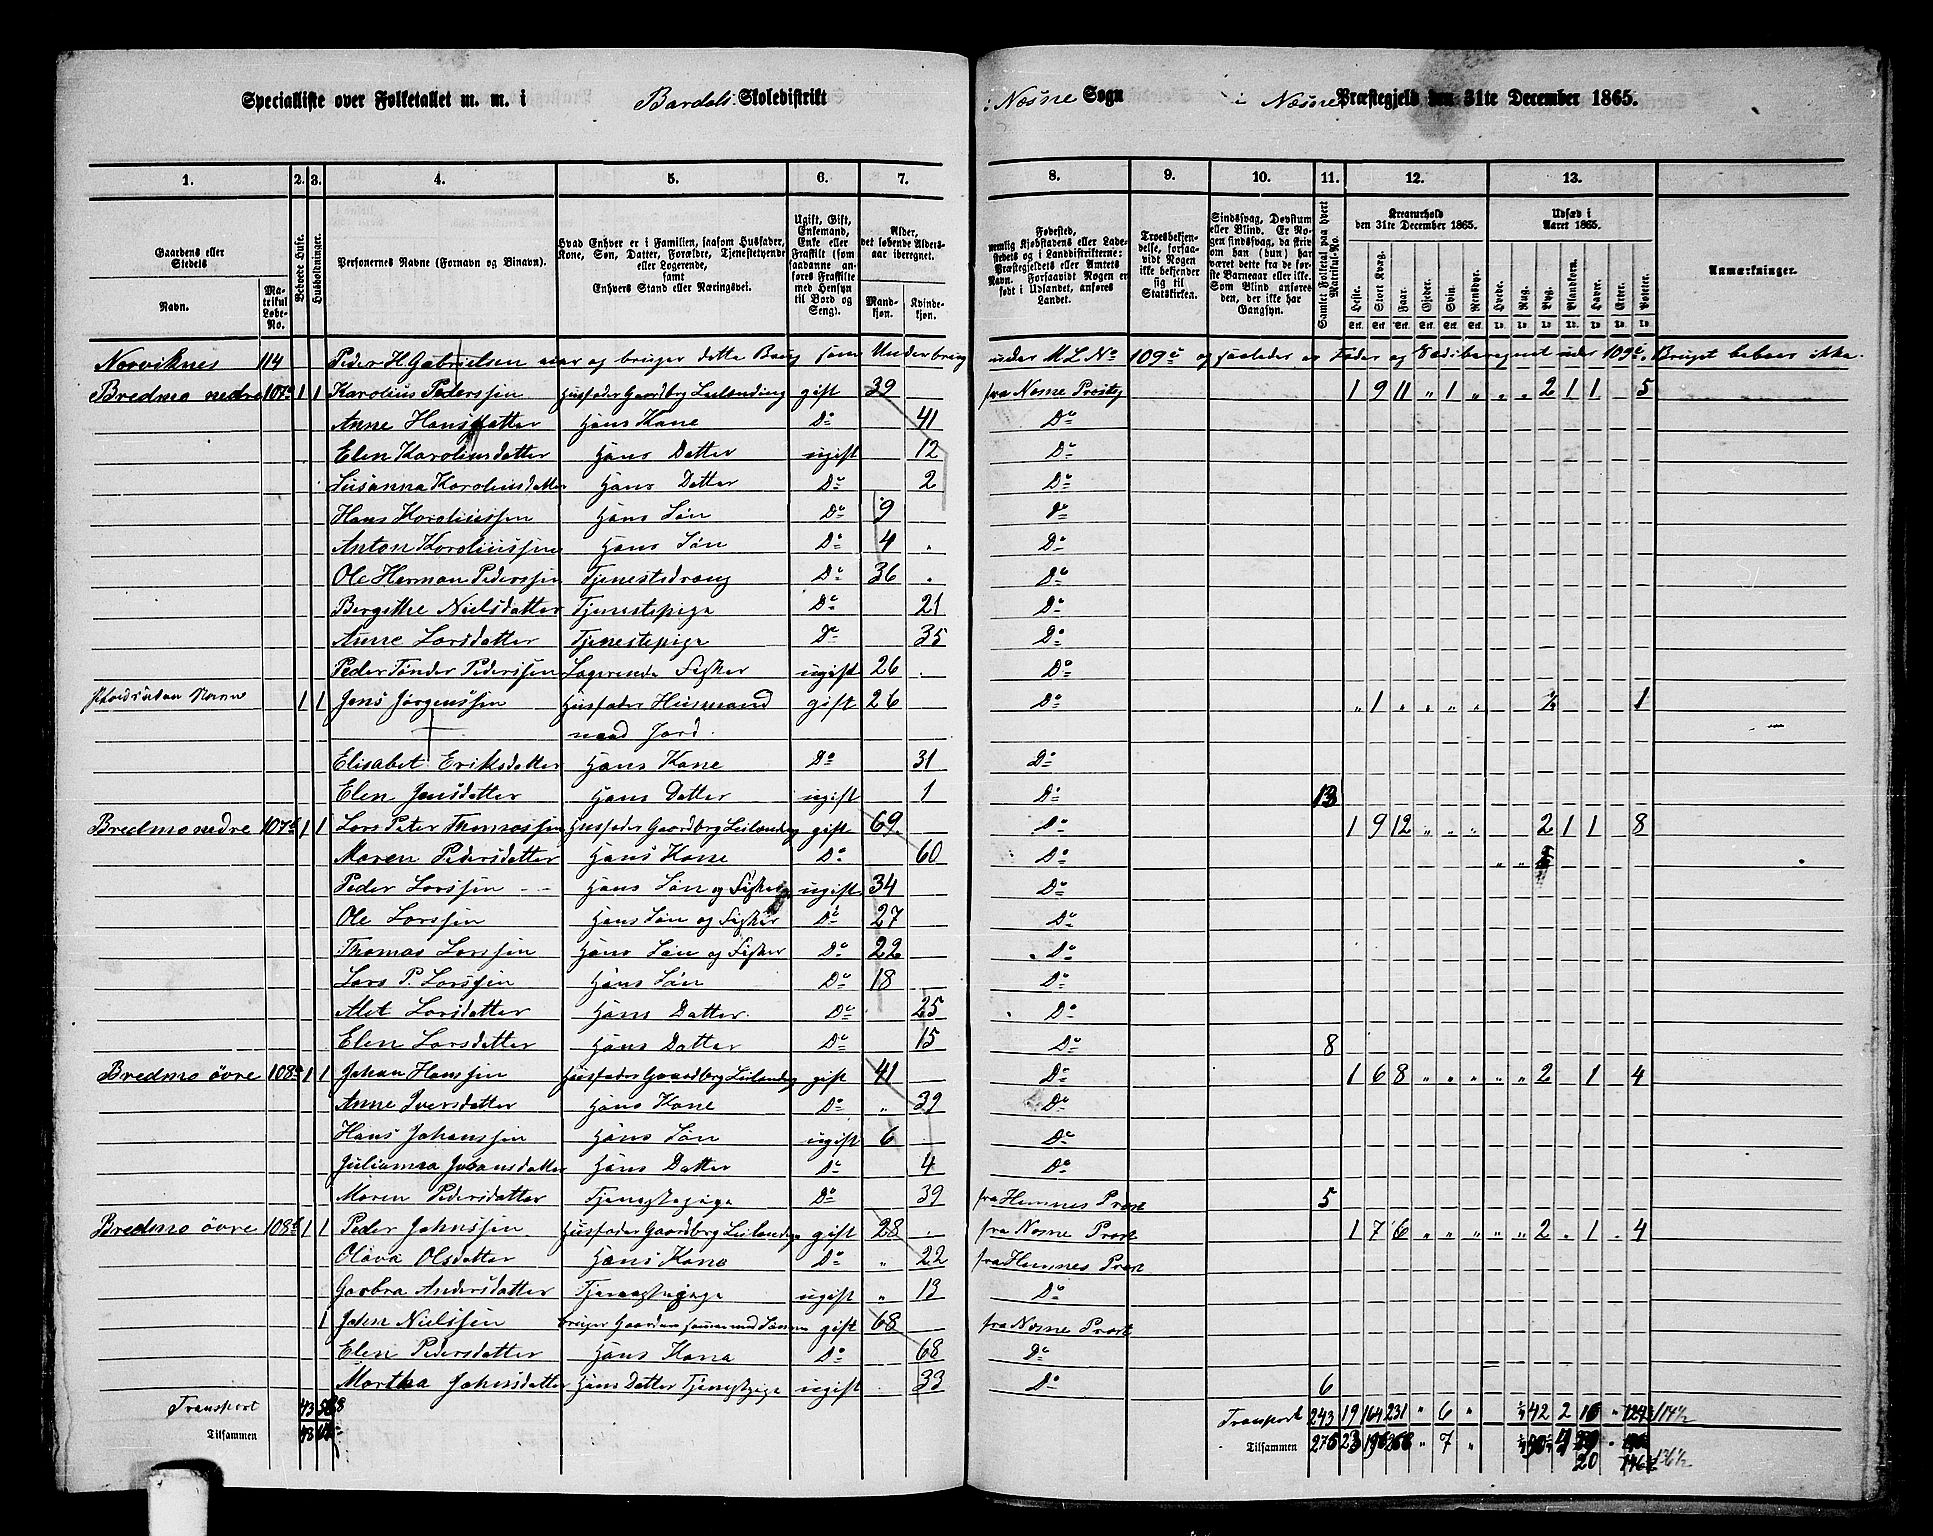 Specialliste over Folketallet m. m. i Bardals Skoledistrikt i Næsne Sogn i Næsne Præstegjeld den 31te December 1865.
1. 2. 3. 4. 5. 6. 7. 8. 9. 10. 11. 12. 13.
Gaardens eller Stedets Navn. Matrikul Løbe-No. Beboede Huse. Husholdninger. Personernes Navne (Fornavn og Binavn). Hvad Enhver er i Familien, saasom Husfader, Kone, Søn, Datter, Forældre, Tjenestetyende eller Logerende, samt Enhvers Stand eller Næringsvei. Ugift, Gift, Enkemand, Enke eller Fraskilt (som saadanne anføres Fraskilte med Hensyn til Bord og Seng). Alder, det løbende Alders-aar iberegnet. Mandkjøn. Kvindekjøn.
Fødested, nemlig Kjøbstadens eller Ladestedets og i Landdistrikterne: Præstegjeldets eller Amtets Navn. Forsaavidt Nogen er født i Udlandet, anføres Landet. Troesbekjendelse, forsaavidt Nogen ikke bekjender sig til Statskirken. Sindssvag, Døvstum eller Blind. Er Nogen sindssvag, da skrives om han (hun) har været dette fra de første Barneaar eller ikke. Som Blind anføres den, der ikke har Gangsyn. Samlet Folketal paa hvert Matrikul-No. Kreaturhold den 31te December 1865. Udsæd i Aaret 1865. Anmærkninger.
Heste. Stort Kvæg. Faar. Gjeder. Svin. Rensdyr. Hvede. Rug. Byg. Blandkorn. Havre. Erter. Poteter.
Norviknes 114 Peder H. Gabrielsen eier og bruger dette Brug som Underbrug under M. L. No 109c og saaledes er Føder og Sæd iberegnet under 109c. Bruget beboes ikke.
Bredmo nedre 107a 1 1 Karolius Pederssen Husfader Gaardbrg Leilænding gift 39 fra Næsne Præstg 1 9 11 " 1 " " " 2 1 1 5
Anne Hansdatter Hans Kone Do 41 Do
Elen Karoliusdatter Hans Datter ugift 12 Do
Susanna Karoliusdatter Hans Datter Do 2 Do
Hans Karoliussen Hans Søn Do 9 Do
Anton Karoliussen Hans Søn Do 4 Do
Ole Herman Pederssen Tjenestedreng Do 36 Do
Bergitthe Nielsdatter Tjenestepige Do 21 Do
Anne Larsdatter Tjenestepige Do 35 Do
Peder Tønder Pederssen Logerende Fisker ugift 26 Do
1 1 Jens Jørgenssen Husfader Husmand gift 26 Do " 1 " " " " 1
med Jord.
Elisabet Eriksdatter Hans Kone Do 31 Do
Elen Jensdatter Hans Datter ugift 1 Do 13
Bredmo nedre 107b 1 1 Lars Peter Thomassen Husfader Gaardbrg Leilænding gift 69 Do 1 9 12 " " " 2 1 1 8
Maren Pedersdatter Hans Kone Do 60 Do
Peder Larssen Hans Søn og Fisker ugift 34 Do
Ole Larssen Hans Søn og Fisker Do 27 Do
Thomas Larssen Hans Søn og Fisker Do 22 Do
Lars P. Larssen Hans Søn Do 18 Do
Alet Larsdatter Hans Datter Do 25 Do
Elen Larsdatter Hans Datter Do 15 Do 8
Bredmo övre 108a 1 1 Johan Hanssen Husfader Gaardbrg Leilænding gift 41 Do 1 6 8 " " " " " 2 1 4
Anne Iversdatter Hans Kone Do " 39 Do
Hans Johanssen Hans Søn ugift 6 Do
Julianna Johansdatter Hans Datter Do 4 Do
Maren Pedersdatter Tjenestepige Do 39 fra Hemnes Præst 5
Bredmo övre 108b 1 1 Peder Johnssen Husfader Gaardbrg Leilænding gift 28 fra Næsne Præst 1 7 6 " " " " " 2 " 1 " 4
Olava Olsdatter Hans Kone Do " 22 fra Hemnes Præst
Andersdatter Tjenestepige ugift " 13 Do
1 John Nielssen bruger Gaarden sammen med Sønnen gift 68 fra Næsne Præst
Elen Pedersdatter Hans Kone Do 68 Do
Martha Johnsdatter Hans Datter Tjenestpige ugift 33 Do 6
Transport 43 Transport 243 19 164 231 " 6 " 42 2 16 "
Tilsammen 48 Tilsammen 275 23 196 268 " 7 "
20 146 136½